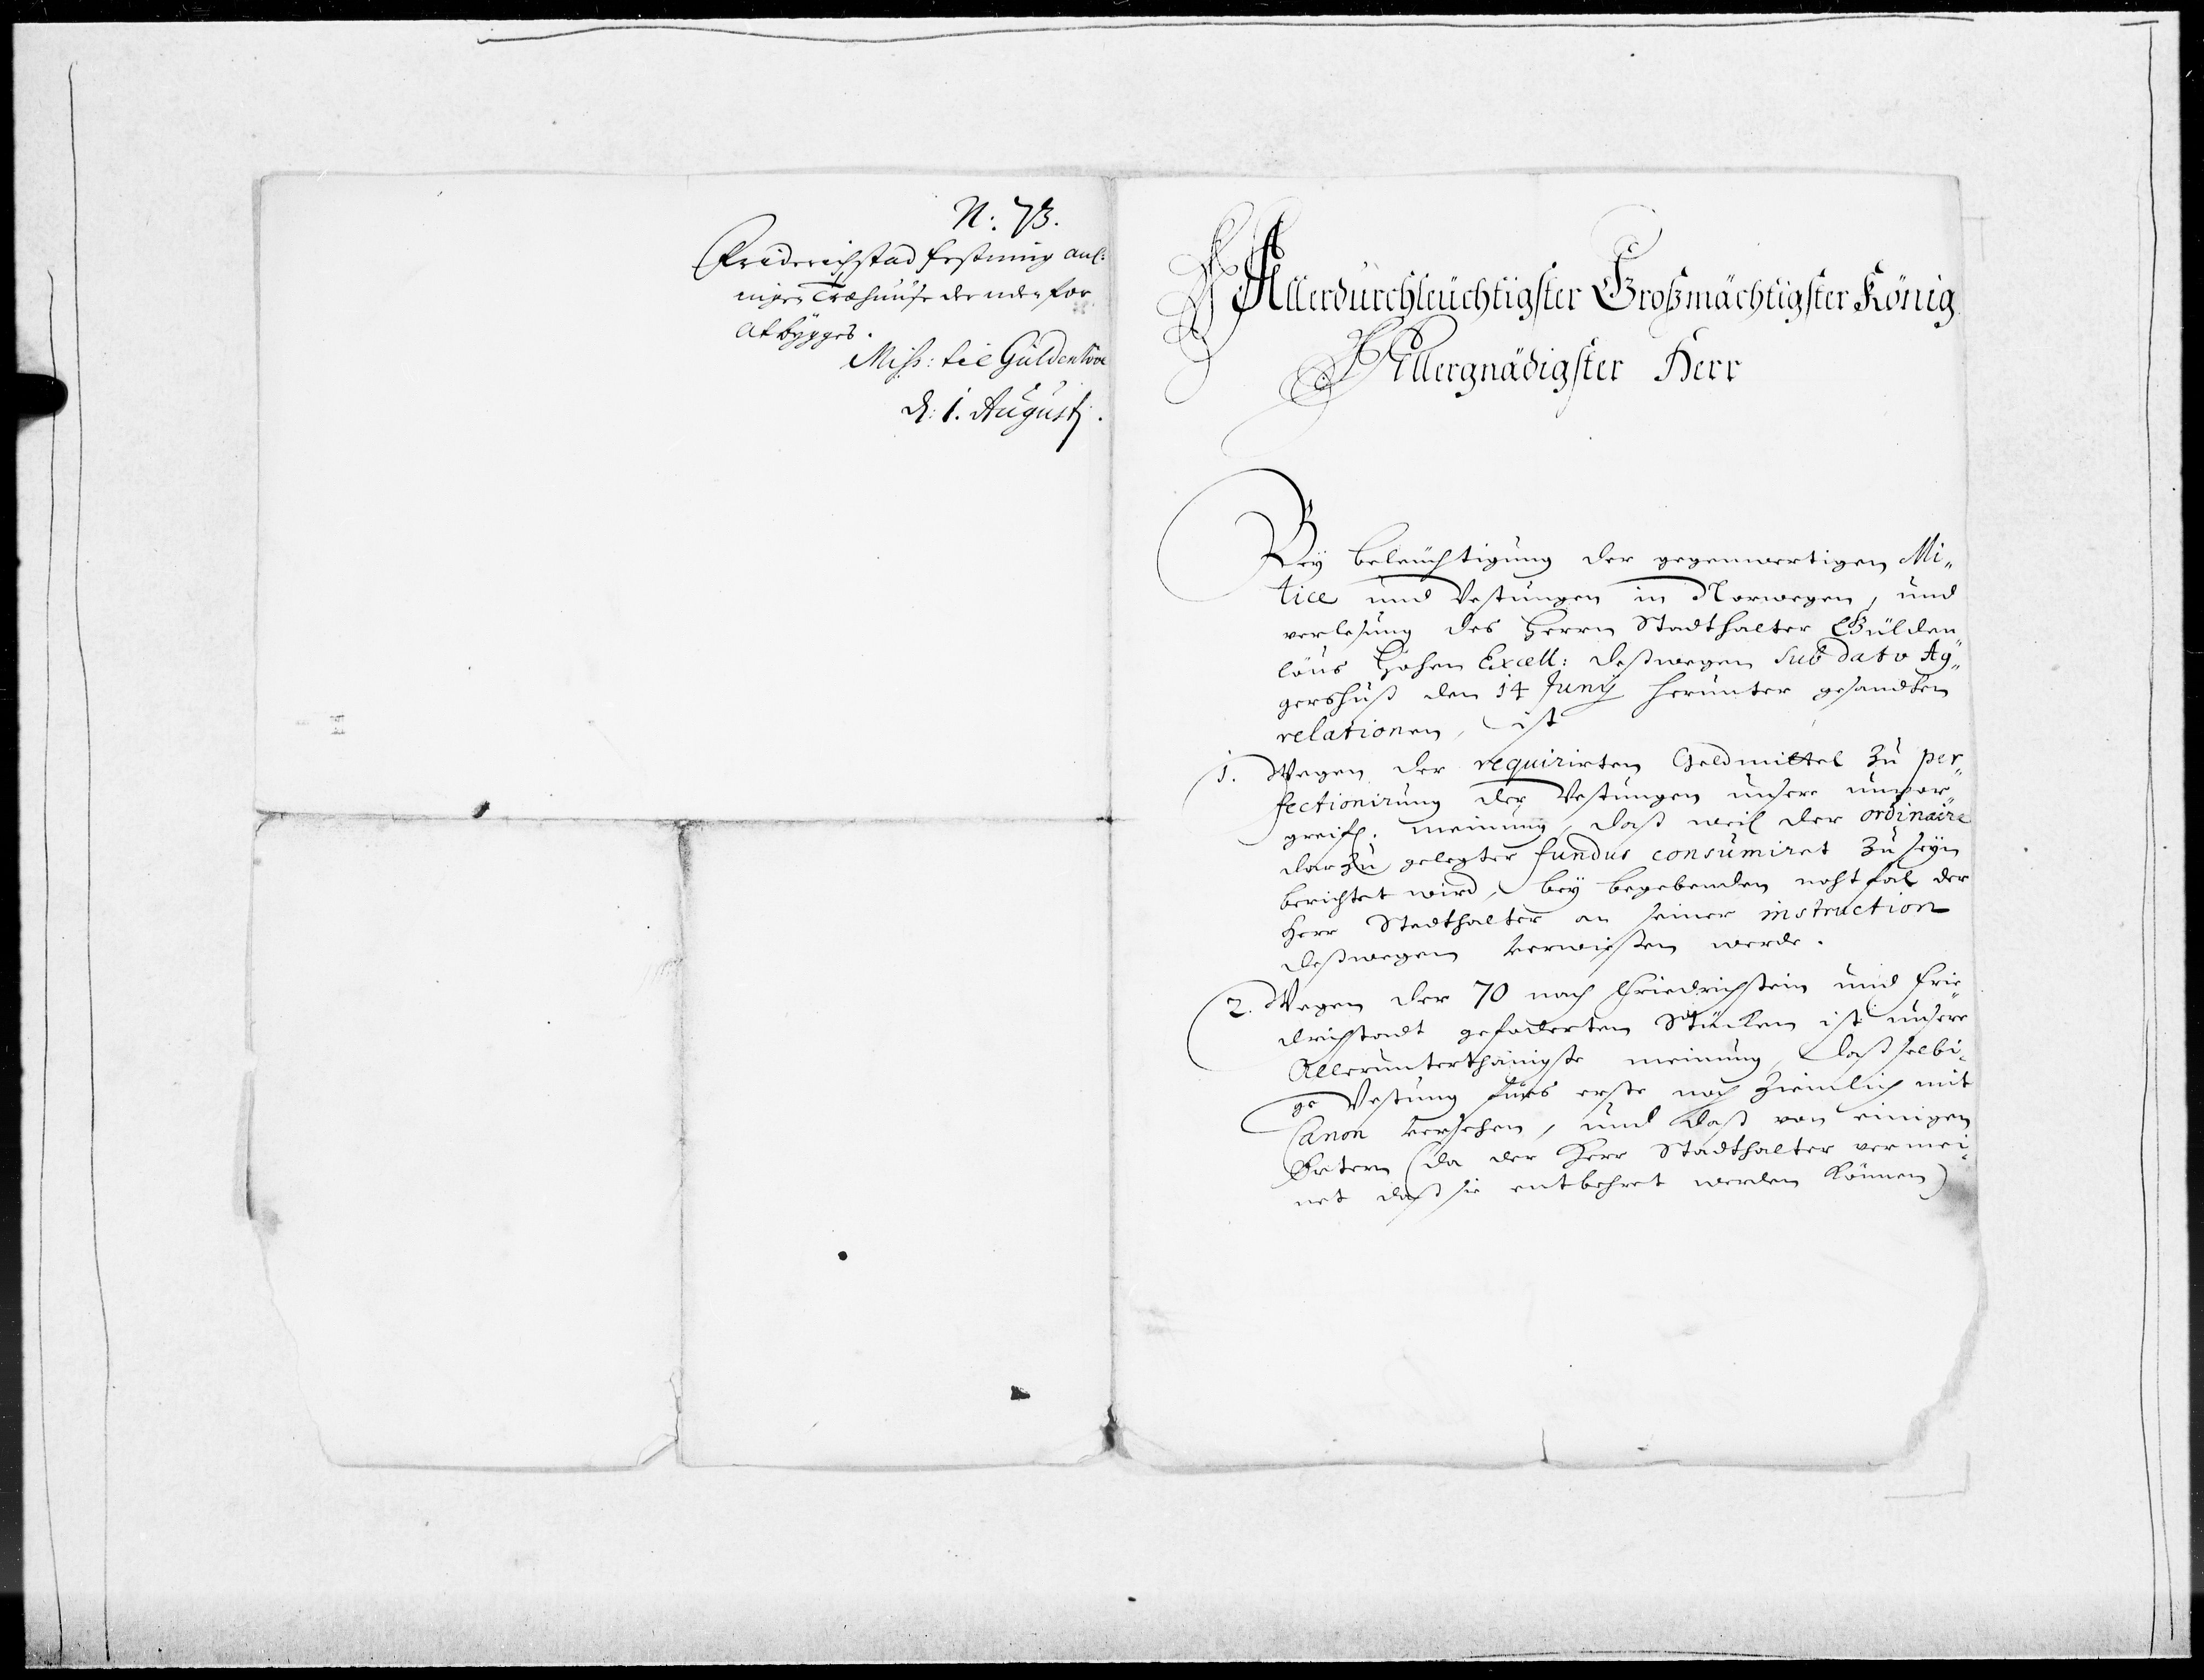 N: 73.
Friderichstad festning anl:
ingen Træhuuse der uden for
at bÿgges.
Miss: til Güldenlöve
d: 1. Augustj.
Allerdurchleüchtigster Großmächtigster König
Allergnädigster Herr
Beÿ beleüchtigung der gegenwertigen Mi„
litice und Vestungen in Norwegen, und
verlesung des Herrn Stadthalter Gülden„
löus Hohen Excell: deßwegen sub dato Ag„
gershuß den 14 Junÿ herunter gesandten
relationen, ist
1. Wegen der requirirten Geldmittel zu per„
fectionirung der Vestungen unsere unvor„
greifl. meinung, daß weil der ordinaire
darzu gelegter fundus consumiret zu seÿn
berichtet wird, beÿ begebenden nohtfal der
Herr Stadthalter an seiner instruction
deßwegen verwiesen werde.
2. Wegen der 70 nach Friedrichstein und Frie„
drichstadt gefoderten Stücken ist unsere
Allerunterthänigste meinung, daß selbi„
ge Vestung fürs erste noch ziemlich mit
Canon versehen, und daß von einigen
Örtern (da der Herr Stadthalter vermei„
net daß sie entbehret werden können)